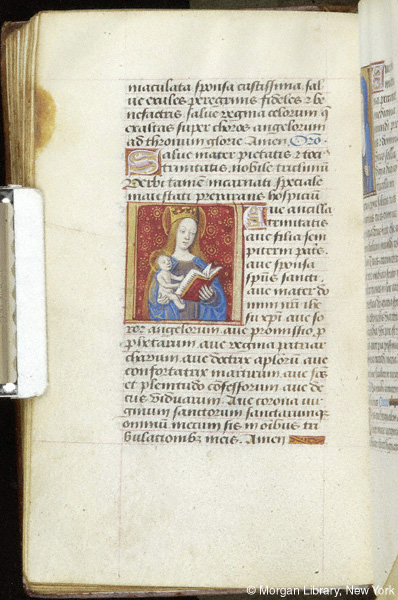 maculata sponsa castissima. sal
ue exules peregrinis fideles & be
nefactris. salue regina celorum q̃
exaltas super choros angelorum
ad thronum glorie. Amen. Oro.
Salue mater pietatis & toci
trinitatis, nobile triclinium
Verbi tamen incarnati speciale
maiestati preparans hospiciũ
Aue ancilla
trinitatis
aue filia sem
piterni patris.
aue sponsa
spũs sancti.
aue mater do
mini nr̃i ihe
su xp̃i aue so
ror angelorum aue promissio p̃
phetarum aue regina patriar
charum aue doctrix aplorũ aue
confortatrix martirum aue fõs
et plenitudo cõfessorum aue de
cus viduarum. Aue corona vir
ginum sanctorum sanctarumq̃
omniũ mecum sis in oĩbus tri
bulationibꝫ meis. Amen
© Morgan Library, New York